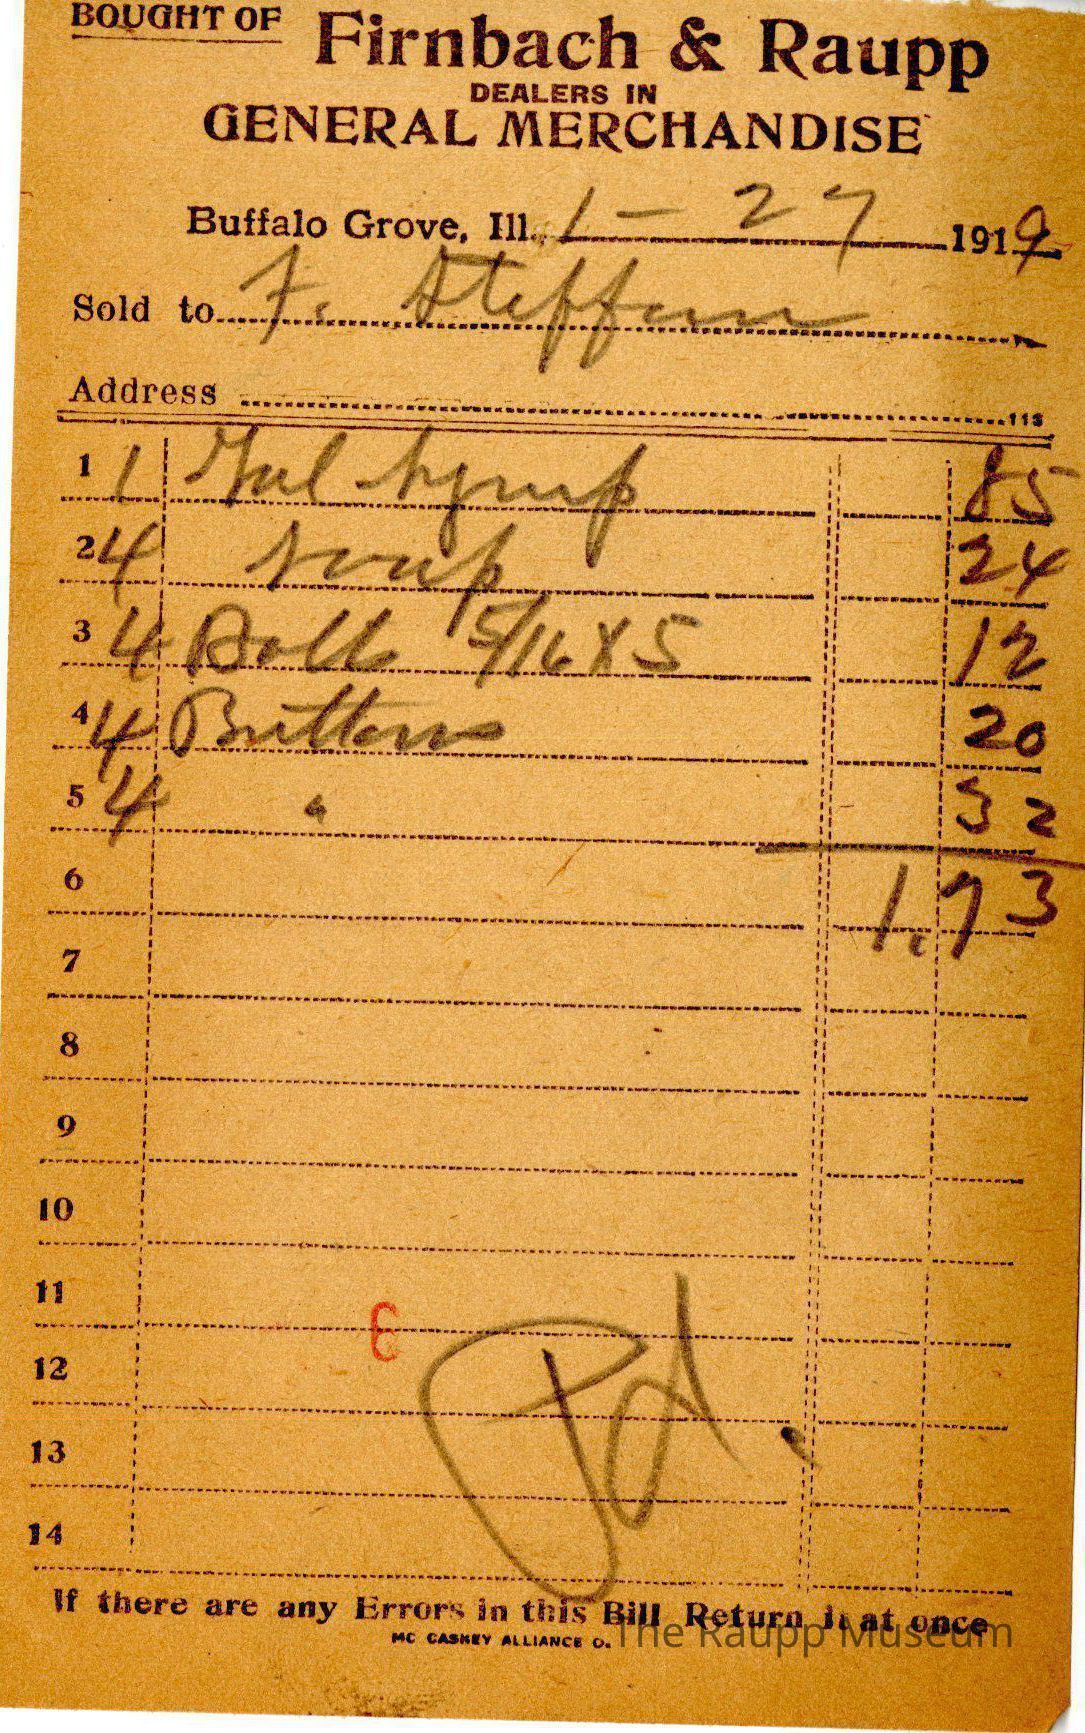 BOUGHT OF Firnbach & Raupp
DEALERS IN
GENERAL MERCHANDISE
Buffalo Grove, Ill. 1 - 27 1919
Sold to F. Steffen
Address
113
1 1 Gal Syrup 85
2 4 Soap 24
3 4 Bolts 5/16 X 5 12
4 4 Buttons 20
5 4 " 32
6 1.73
7
8
9
10
11
6
12
Pd.
13
14
If there are any Errors in this Bill Return it at once
MC CASKEY ALLIANCE O.
The Raupp Museum